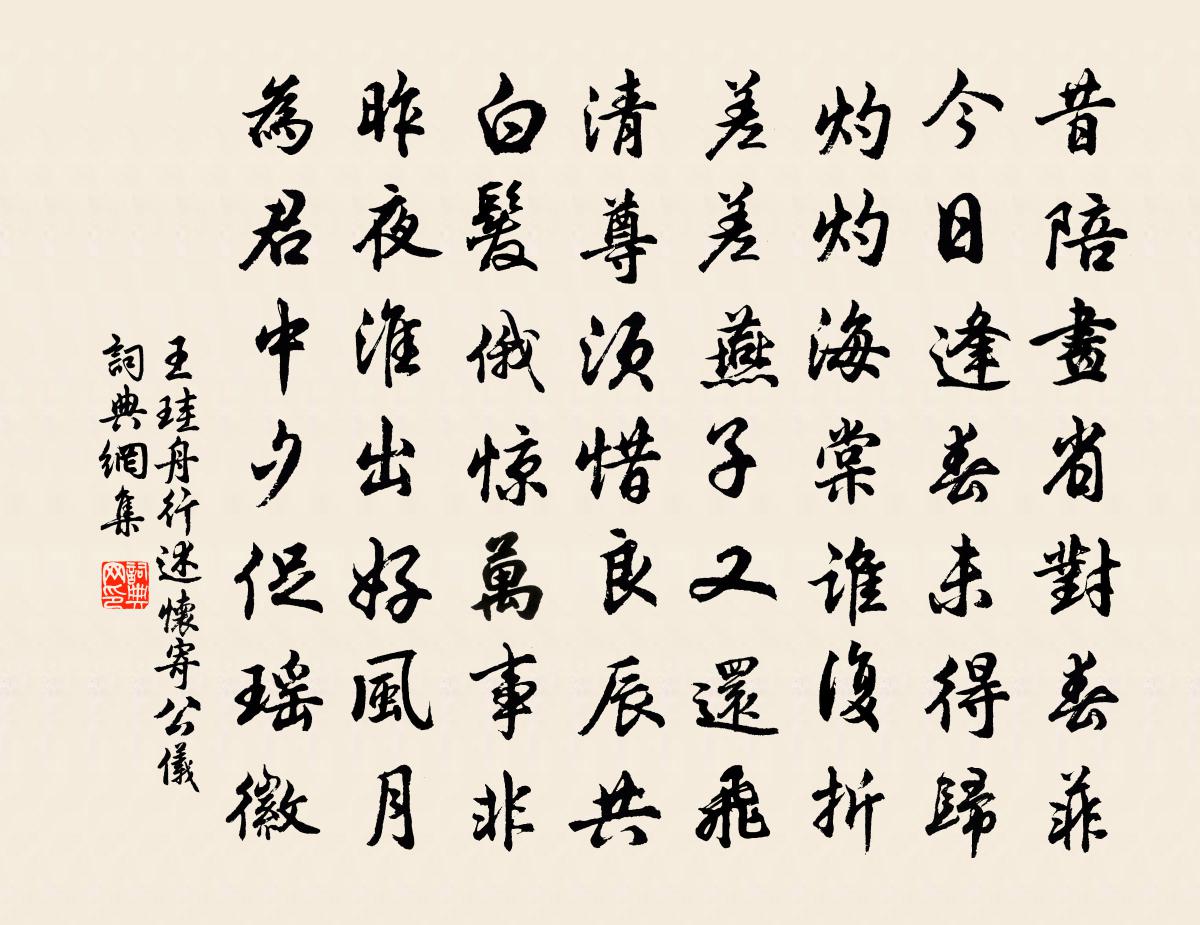 昔陪晝省對春菲
今日逢春未得歸
灼灼海棠誰復折
差差燕子又還飛
清尊須惜良辰共
白髮俄惊萬事非
昨夜淮出好風月
為君中夕促瑶徽
王珪舟行述懷寄公儀
詞典網集
詞典网印